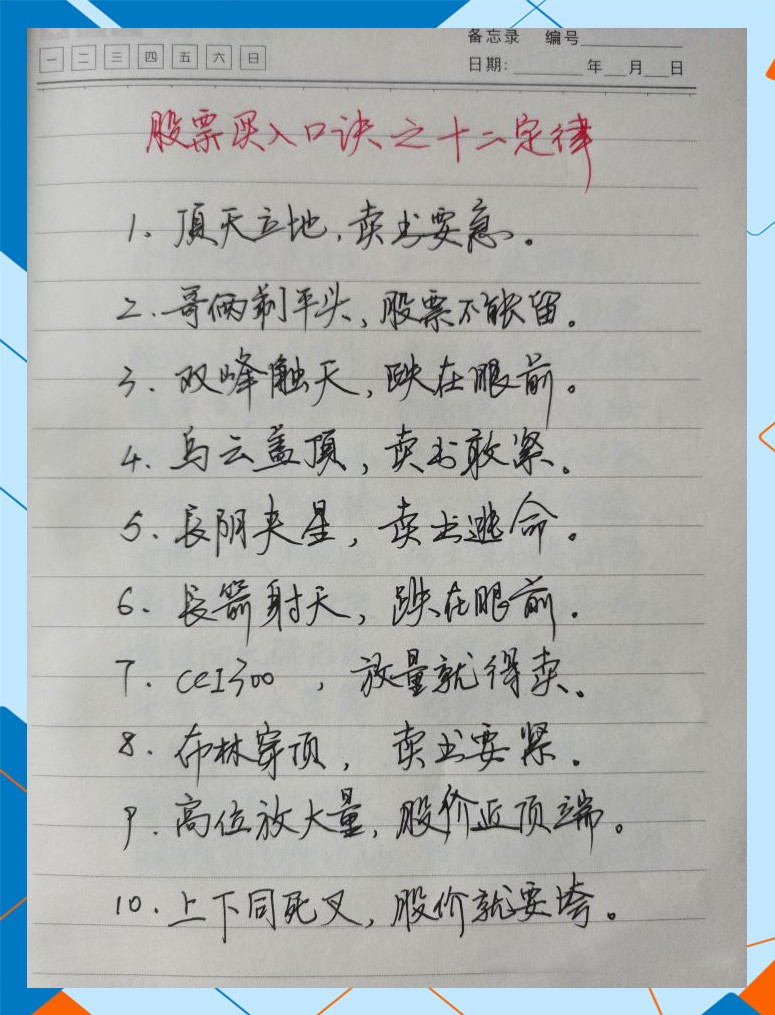 备忘录 编号
一 二 三 四 五 六 日
日期: 年 月 日
股票买入口诀之十二定律
1. 頂天立地,卖出要急。
2. 哥俩剃平头,股票不能留。
3. 双峰触天,跌在眼前。
4. 乌云盖頂,卖出敢紧。
5. 長阴夹星,卖出逃命。
6. 長箭射天,跌在眼前.
7. CCI300 ,放量就得卖。
8. 布林穿顶,卖出要紧.
9. 高位放大量,股价近顶端。
10. 上下同死叉,股价就要垮。